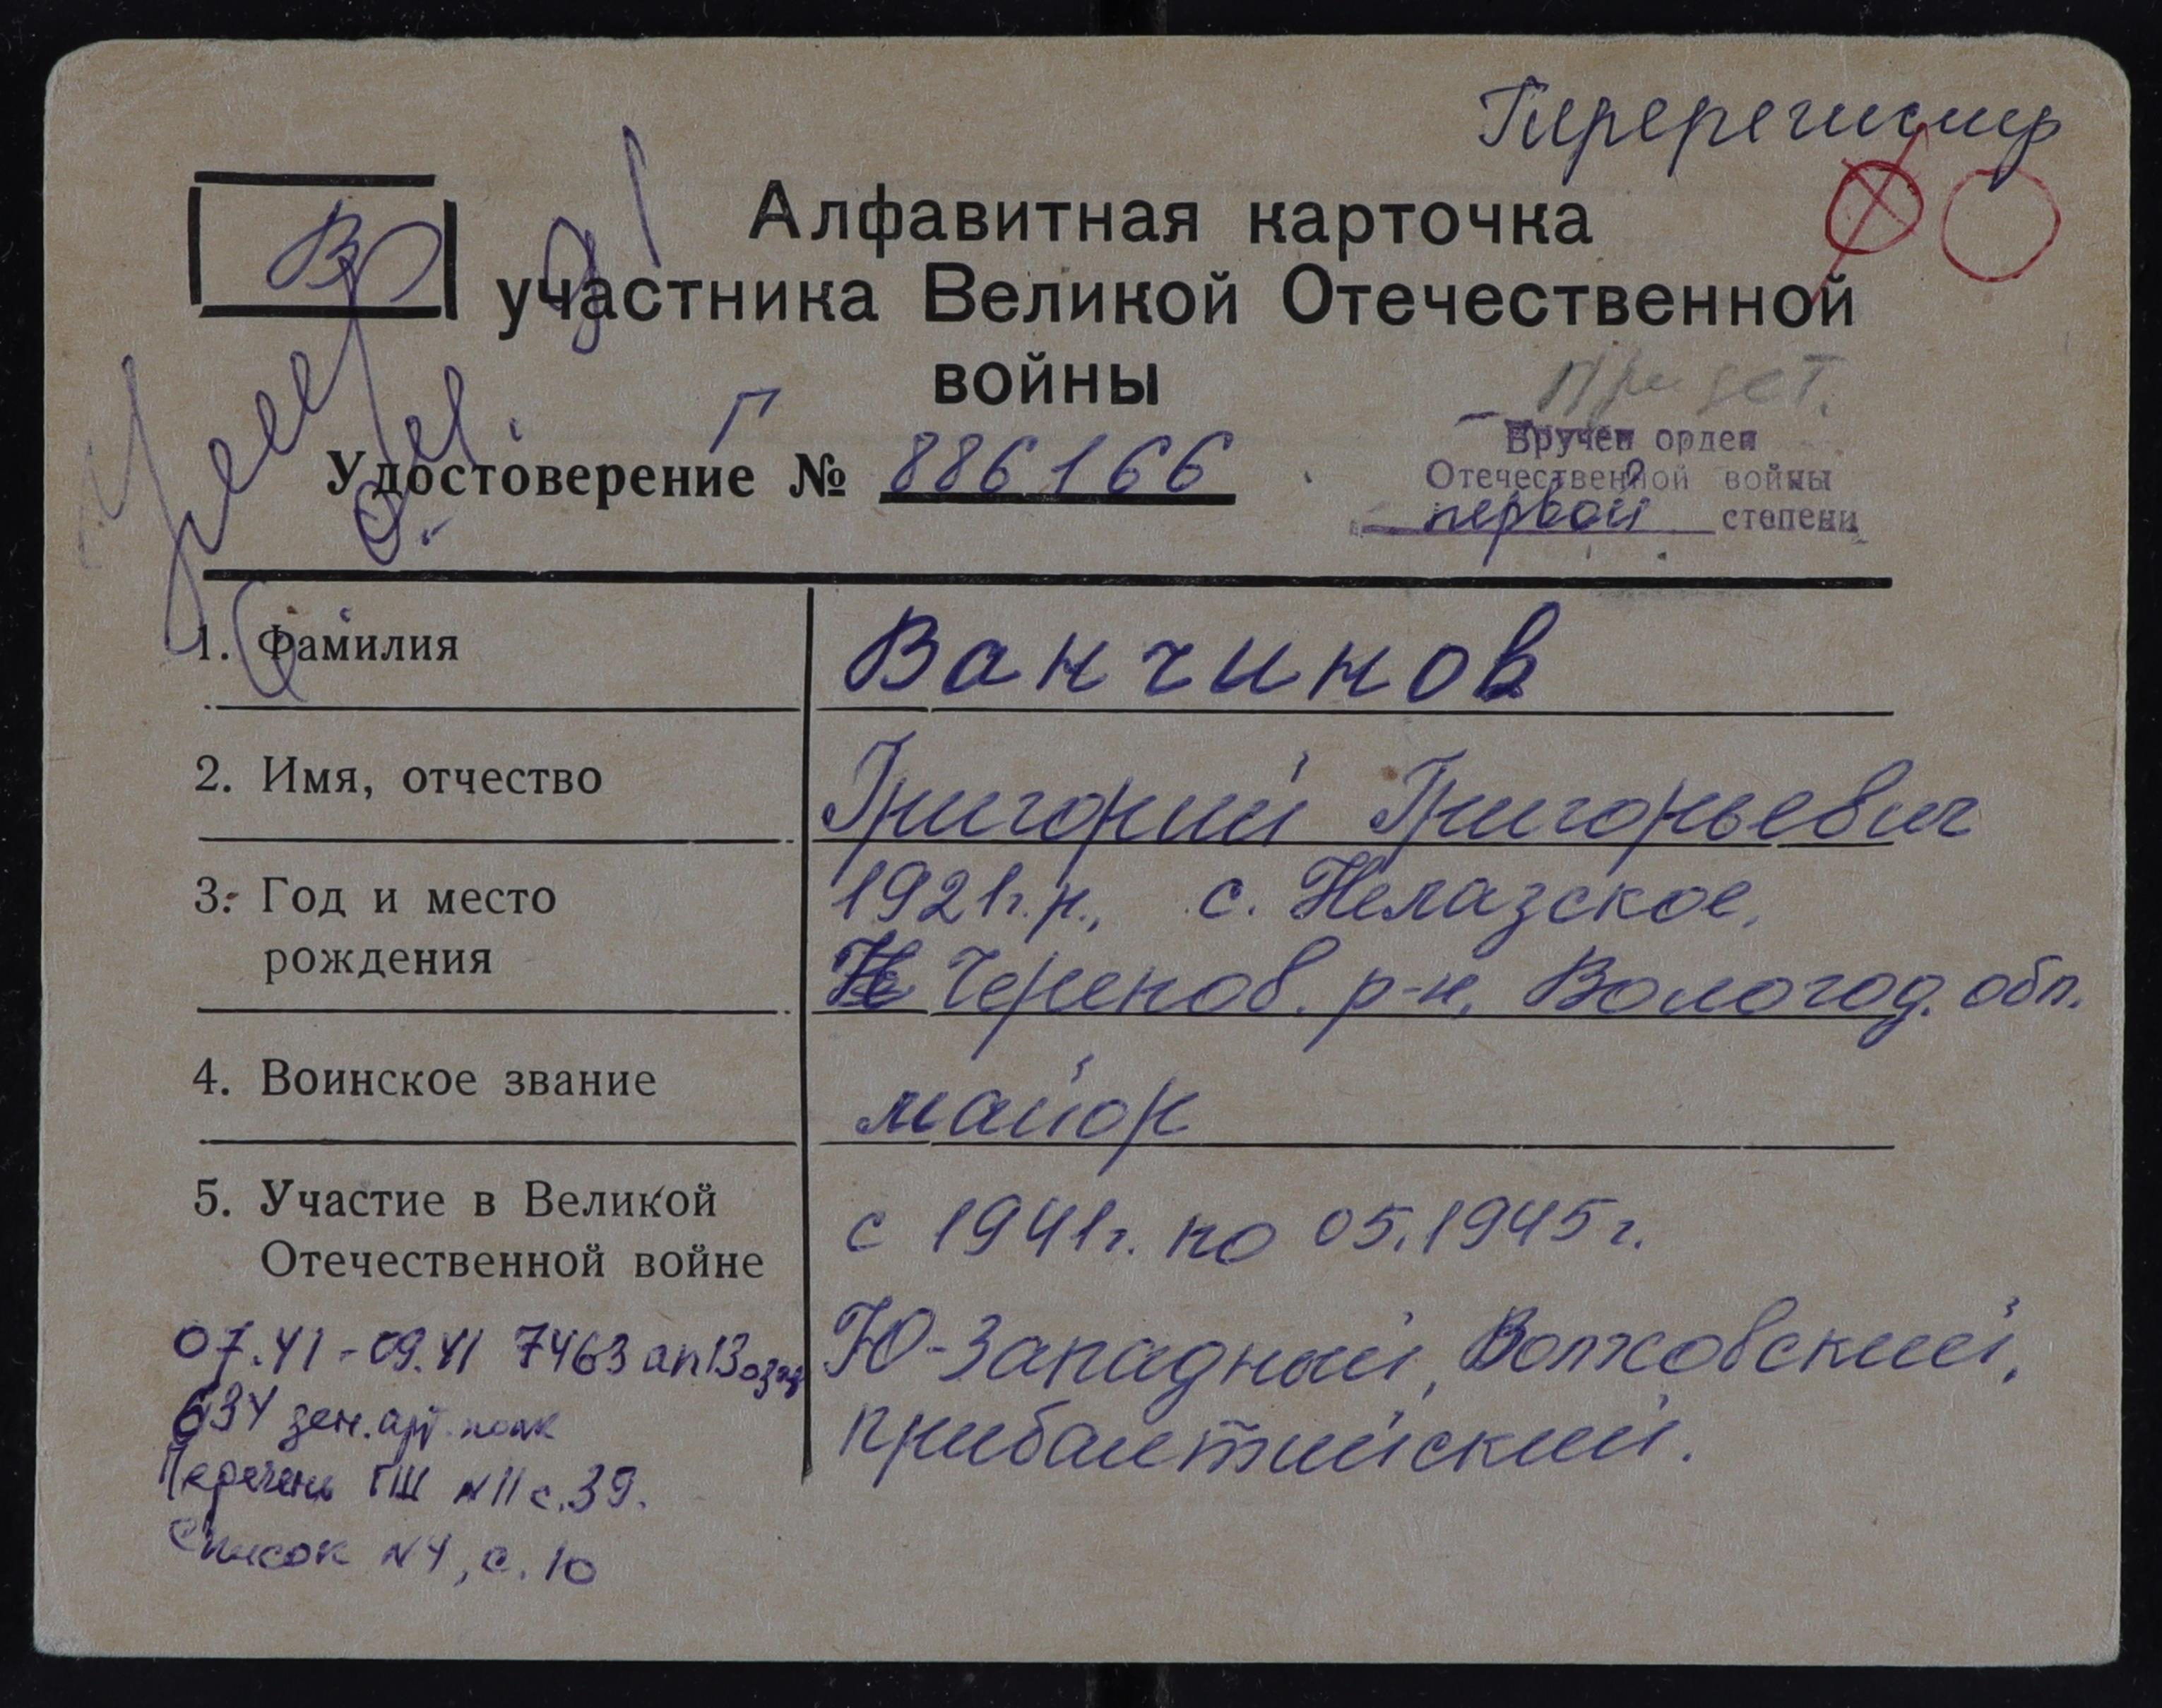 Перерегистр
В
Алфавитная карточка
участника Великой Отечественной
войны
Г
Удостоверение № 886166
Вручен орден
Отечественной войны
первой степени
1. Фамилия
Ванчинов
2. Имя, отчество
Григорий Григорьевич
3. Год и место
рождения
1921г.р., с. Нелазское,
Черепов. р-н, Вологод. обл.
4. Воинское звание
майор
5. Участие в Великой
Отечественной войне
с 1941г. по 05.1945г.
Ю-Западный, Волховский,
прибалтийский.
07.41-09.41 7463 ап
634 зен.арт.полк
Перечень ГШ №11 с.39.
Список №4, с.10